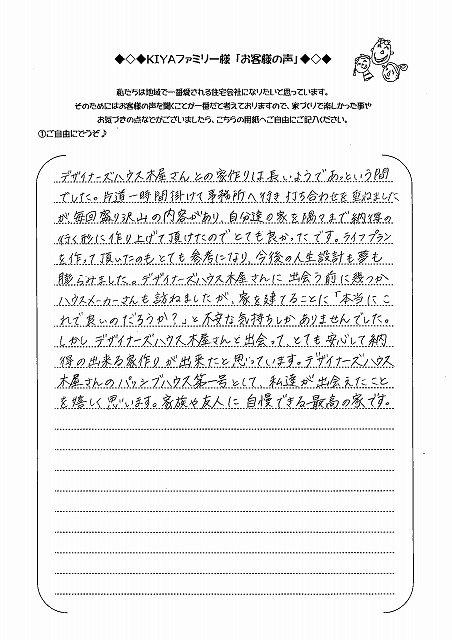 ◆◇◆KIYAファミリー様「お客様の声」◆◇◆
私たちは地域で一番愛される住宅会社になりたいと思っています。
そのためにはお客様の声を聞くことが一番だと考えておりますので、家づくりで楽しかった事や
お気づきの点などがございましたら、こちらの用紙へご自由にご記入ください。
①ご自由にどうぞ♪
デザイナーズハウス木屋さんとの家作りは長いようであっという間
でした。片道一時間掛けて事務所へ行き打ち合わせを重ねました
が毎回盛り沢山の内容があり、自分達の家を隅々まで納得の
行く形に作り上げて頂けたのでとても良かったです。ライフプラン
を作って頂いたのもとても参考になり、今後の人生設計も夢も
膨らみました。デザイナーズハウス木屋さんに出会う前に幾つか
ハウスメーカーさんも訪ねましたが、家を建てることに「本当にこ
れで良いのだろうか？」と不安な気持ちしかありませんでした。
しかしデザイナーズハウス木屋さんと出会って、とても安心して納
得の出来る家作りが出来たと思っています。デザイナーズハウス
木屋さんのパッシブハウス第一号として、私達が出会えたこと
を嬉しく思います。家族や友人に自慢できる最高の家です。